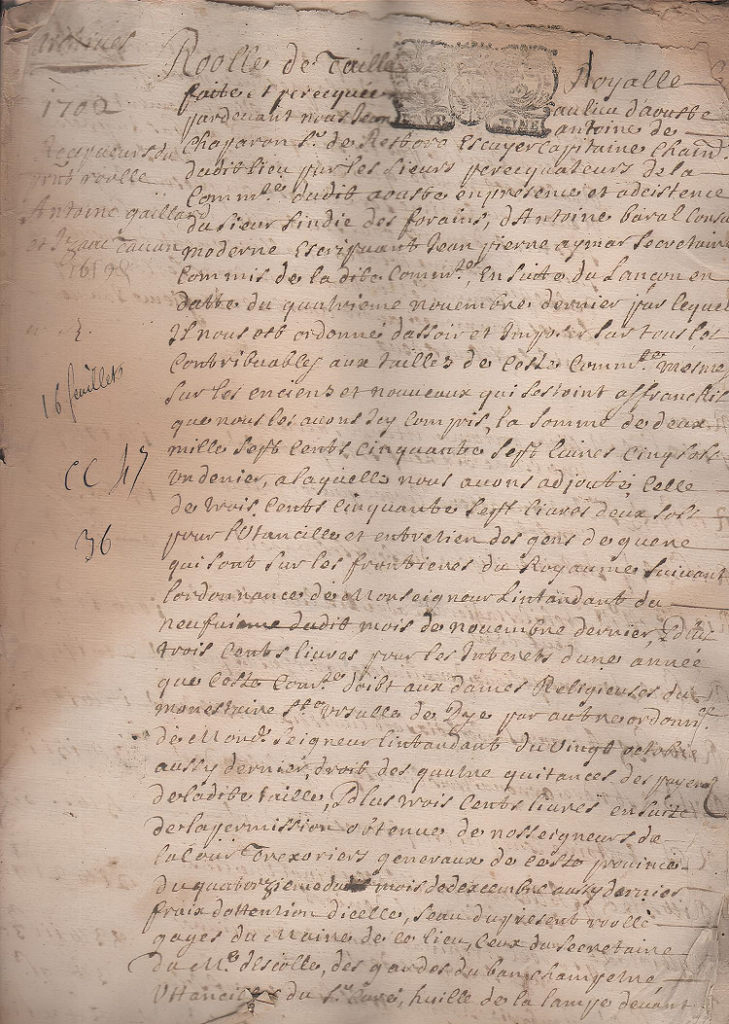 Archives
1702
Exacteurs du
pnt roolle
Antoine gaillard
et Izaac Tauan
16 feuillets
CC 47
36
Roolle de Taille Royalle
faite et perecquee au lieu daouste
pardeuant nous Jean antoine de
Chaparon Sr. de Escuyer Capitaine
dudit lieu par les sieurs perecquateurs de la
Commté. dudit aouste en presence et adcistence
du sieur sindic des forains, dAntoine baral Consul
moderne Escripuant Jean pierre aymar Secretaire
Commis de ladite Commté. En suite du Lançon en
datte du quatrieme nouembre dernier par lequel
Il nous est ordonné dassoir et Imposer sur tous les
Contribuables aux tailles de Ceste Commté. mesme
sur les enciens et nouueaux qui sestoint affranchis
que nous les auons Icy Compris, la somme de deux
mille sept Cents Cinquante sept liures Cinq sols
un denier, a laquelle nous auons adjouté Celle
de trois Cents Cinquante sept liures deux sols
pour lUtancille et entretien des gens de guerre
qui sont sur les frontieres du Royaume suiuant
lordonnance de Monseigneur Lintandant du
neufuieme dudit mois de nouembre dernier,
trois Cents liures pour les Interets dune année
que Ceste Comté. doibt aux dames Religieuses du
monestaire Ste. Ursulle de Dye par autre ordonnce.
de Mond. Seigneur lintandant du Vingt octobre
aussy dernier, droit des quatre quitances des payes
de ladite taille, Plus trois Cents liures en suite
de la permission obtenue de nosseigneurs de
la Cour Trezoriers generaux de Ceste prouince
du quatorzieme dudit mois de dexcembre aussy dernier
fraix dobtention dicelle, seau du present roolle
gages du Maire de Ce lieu, Ceux du Secretaire
du Me. descolle, des gardes du ban Champetre
Uttancilles du Sr. Curé, huille de la lampe deuant